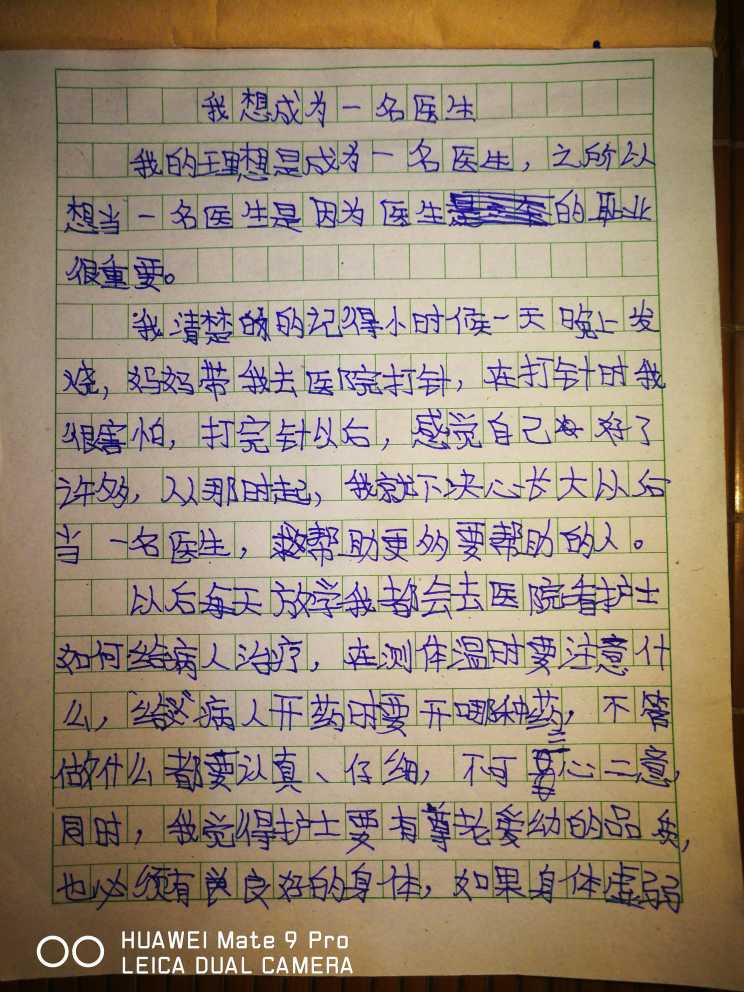 我想成为一名医生
我的理想是成为一名医生，之所以
想当一名医生是因为医生的职业
很重要。
我清楚的的记得小时候一天晚上发
烧，妈妈带我去医院打针，在打针时我
很害怕，打完针以后，感觉自己好了
许多，从那时起，我就下决心长大以后
当一名医生，救帮助更多要帮助的人。
以后每天放学我都会去医院看护士
如何给病人治疗，在测体温时要注意什
么，给病人开药时要开哪种药，不管
做什么都要认真、仔细，不可三心二意，
同时，我觉得护士要有尊老爱幼的品质，
也必须有良好的身体，如果身体虚弱
HUAWEI Mate 9 Pro
LEICA DUAL CAMERA